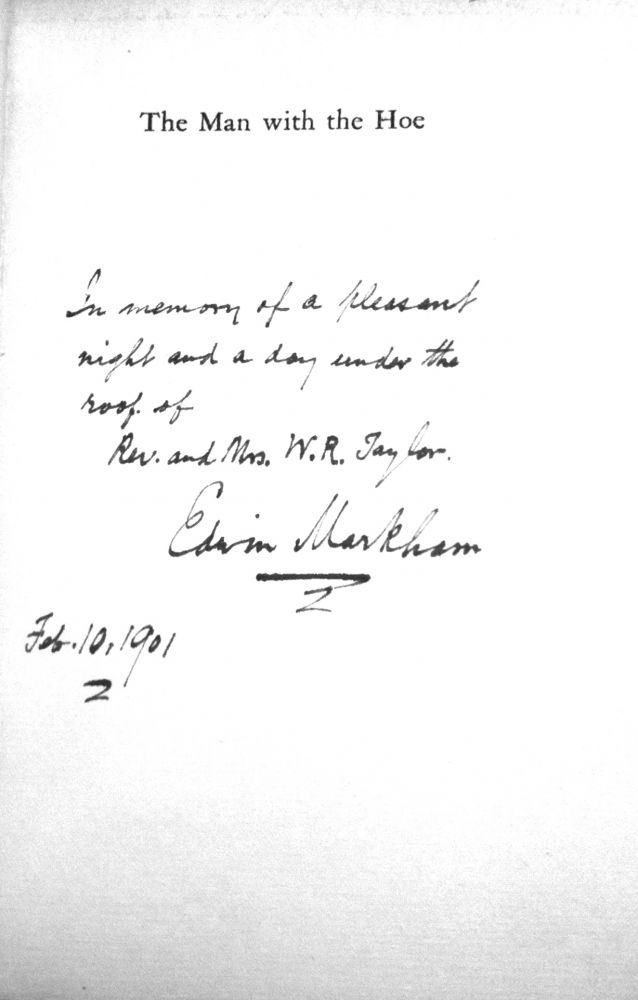 The Man with the Hoe
In memory of a pleasant
night and a day under the
roof of
Rev. and Mrs. W. R. Taylor.
Edwin Markham
Feb. 10, 1901